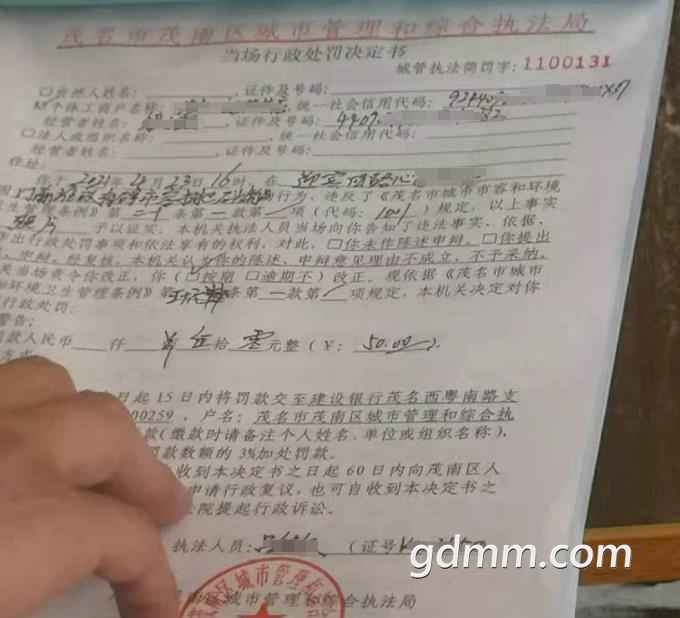 茂名市茂南区城市管理和综合执法局
当场行政处罚决定书
城管执法简罚字：1100131
□自然人姓名：，证件及号码：
个体工商户名称：，统一社会信用代码：
经营者姓名：，证件及号码：
□法人或组织名称：，统一社会信用代码：
经营者姓名：，证件及号码：
住址：
你于2021年 月23日16时，在迎宾
行为，违反了《茂名市城市市容和环境
卫生管理条例》第二十条第一款第/项（代码：1001）规定，以上事实
予以证实。本机关执法人员当场向你告知了违法事实、依据、
作出行政处罚事项和依法享有的权利，对此，□你未作陈述申辩。□你提出
申辩，经复核，本机关认为你的陈述、申辩意见理由不成立，不予采纳。
关当场责令你改正，你（□按期 □逾期不）改正。现依据《茂名市城市
和环境卫生管理条例》第 条第一款第/项规定，本机关决定对你
行政处罚：
警告；
罚款人民币 仟 佰伍拾零元整（￥：50.00）。
方式
日起15日内将罚款交至建设银行茂名西粤南路支
00259，户名：茂名市茂南区城市管理和综合执
款（缴款时请备注个人姓名、单位或组织名称），
罚款数额的3%加处罚款。
收到本决定书之日起60日内向茂南区人
申请行政复议，也可自收到本决定书之
法院提起行政诉讼。
执法人员：（证号
区城市管理和综合执法局
区城市管理和
gdmm.com